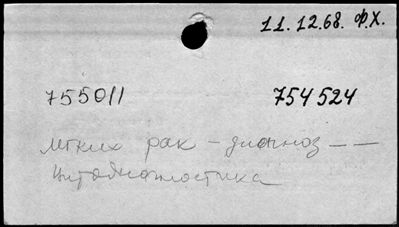 11.12.68. Ф.Х.
755011 754524
легких рак - диагноз - -
цитодиагностика